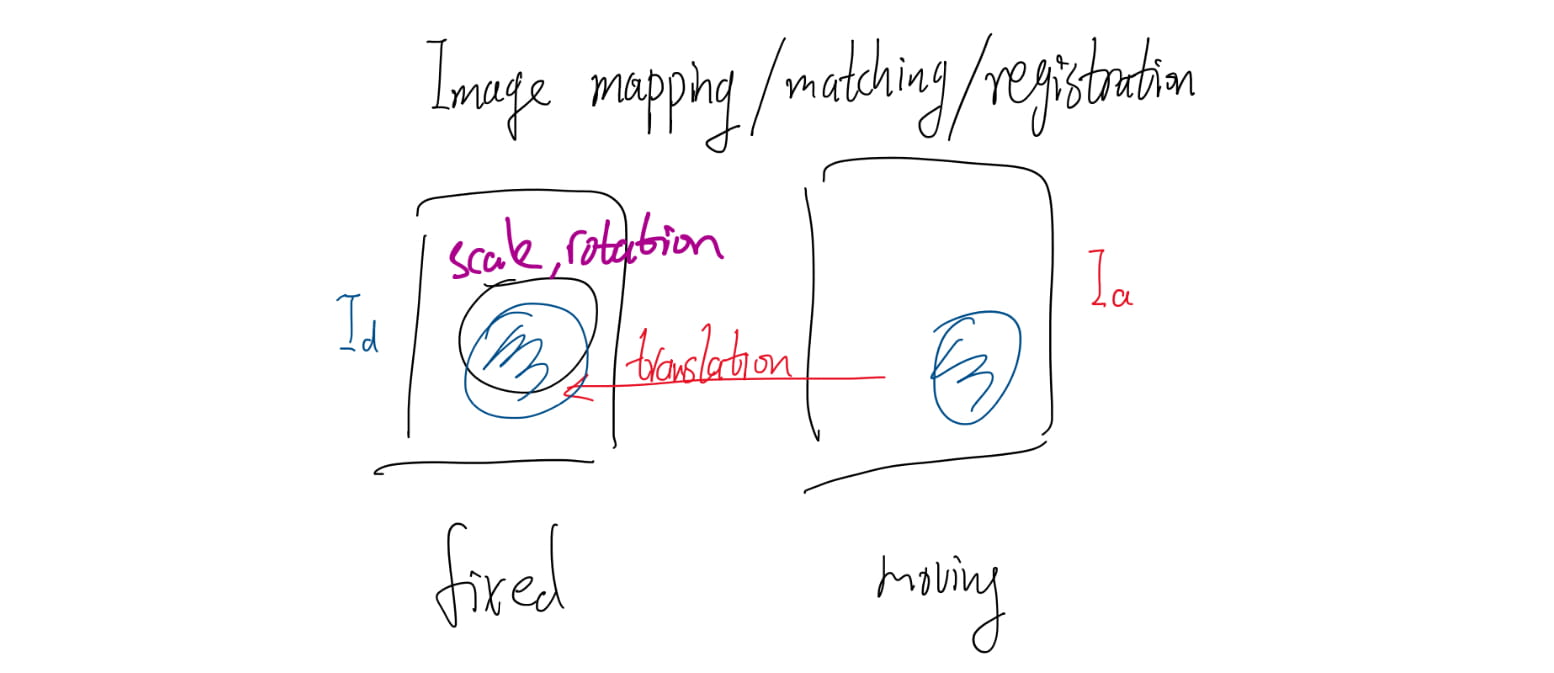 Image mapping/matching/registration
scale, rotation
Id
Ia
translation
fixed
moving